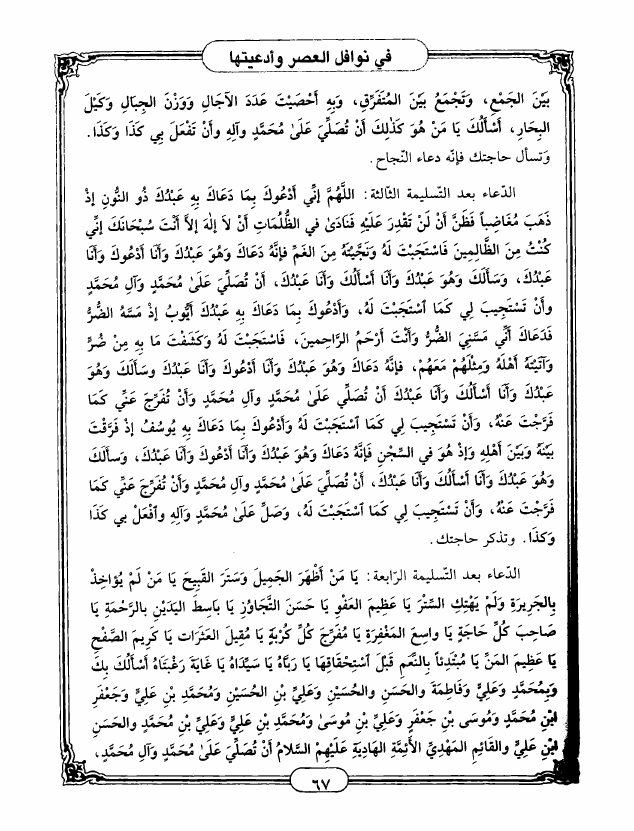 في نوافل العصر وأدعيتها
بَيْنَ الجَمْعِ، وَتَجْمَعُ بَيْنَ المُتَفَرِّقِ، وَبِهِ أَحْصَيْتَ عَدَدَ الآجَالِ وَوَزْنَ الجِبَالِ وَكَيْلَ
البِحَارِ، أَسْأَلُكَ يَا مَنْ هُوَ كَذَلِكَ أَنْ تُصَلِّيَ عَلَىٰ مُحَمَّدٍ وَآلِهِ وَأَنْ تَفْعَلَ بِي كَذَا وَكَذَا.
وتسأل حاجتك فإنّه دعاء النّجاح.
الدّعاء بعد التّسليمة الثّالثة: اللَّهُمَّ إنّي أَدْعُوكَ بِمَا دَعَاكَ بِهِ عَبْدُكَ ذُو النُّونِ إذْ
ذَهَبَ مُغَاضِباً فَظَنَّ أَنْ لَنْ تَقْدِرَ عَلَيْهِ فَنَادَىٰ في الظُّلُمَاتِ أَنْ لاَ إلَهَ إلاَّ أَنْتَ سُبْحَانَكَ إنِّي
كُنْتُ مِنَ الظَّالِمِينَ فَاسْتَجَبْتَ لَهُ وَنَجَّيْتَهُ مِنَ الغَمِّ فَإنَّهُ دَعَاكَ وَهُوَ عَبْدُكَ وَأَنَا أَدْعُوكَ وَأَنَا
عَبْدُكَ، وَسَأَلَكَ وَهُوَ عَبْدُكَ وَأَنَا أَسْأَلُكَ وَأَنَا عَبْدُكَ، أَنْ تُصَلِّيَ عَلَىٰ مُحَمَّدٍ وَآلِ مُحَمَّدٍ
وأَنْ تَسْتَجِيبَ لِي كَمَا ٱسْتَجَبْتَ لَهُ، وَأَدْعُوكَ بِمَا دَعَاكَ بِهِ عَبْدُكَ أَيُّوبُ إذْ مَسَّهُ الضُّرُّ
فَدَعَاكَ أَنِّي مَسَّنِيَ الضُّرُّ وَأَنْتَ أَرْحَمُ الرَّاحِمِينَ، فَاسْتَجَبْتَ لَهُ وَكَشَفْتَ مَا بِهِ مِنْ ضُرٍّ
وَآتَيْتَهُ أَهْلَهُ وَمِثْلَهُمْ مَعَهُمْ، فإنَّهُ دَعَاكَ وَهُوَ عَبْدُكَ وَأَنَا أَدْعُوكَ وَأَنَا عَبْدُكَ وسَأَلَكَ وَهُوَ
عَبْدُكَ وَأَنَا أَسْأَلُكَ وَأَنَا عَبْدُكَ أَنْ تُصَلِّيَ عَلَىٰ مُحَمَّدٍ وآلِ مُحَمَّدٍ وَأَنْ تُفَرِّجَ عَنِّي كَمَا
فَرَّجْتَ عَنْهُ، وَأَنْ تَسْتَجِيبَ لِي كَمَا ٱسْتَجَبْتَ لَهُ وَأَدْعُوكَ بِمَا دَعَاكَ بِهِ يُوسُفُ إذْ فَرَّقْتَ
بَيْنَهُ وَبَيْنَ أَهْلِهِ وَإذْ هُوَ في السِّجْنِ فَإنَّهُ دَعَاكَ وَهُوَ عَبْدُكَ وَأَنَا أَدْعُوكَ وَأَنَا عَبْدُكَ، وَسأَلَكَ
وَهُوَ عَبْدُكَ وَأَنَا أَسْأَلُكَ وَأَنَا عَبْدُكَ، أَنْ تُصَلِّيَ عَلَىٰ مُحَمَّدٍ وآلِ مُحَمَّدٍ وَأَنْ تُفَرِّجَ عَنِّي كَمَا
فَرَّجْتَ عَنْهُ، وَأَنْ تَسْتَجِيبَ لِي كَمَا ٱسْتَجَبْتَ لَهُ، وَصَلِّ عَلَىٰ مُحَمَّدٍ وَآلِهِ وٱفْعَلْ بي كَذَا
وَكَذَا. وتذكر حاجتك.
الدّعاء بعد التّسليمة الرّابعة: يَا مَنْ أَظْهَرَ الجَمِيلَ وَسَتَرَ القَبِيحَ يَا مَنْ لَمْ يُؤَاخِذْ
بِالجَرِيرَةِ وَلَمْ يَهْتِكِ السِّتْرَ يَا عَظِيمَ العَفْوِ يَا حَسَنَ التَّجَاوُزِ يَا بَاسِطَ اليَدَيْنِ بالرَّحْمَةِ يَا
صَاحِبَ كُلِّ حَاجَةٍ يَا واسِعَ المَغْفِرَةِ يَا مُفَرِّجَ كُلِّ كُرْبَةٍ يَا مُقِيلَ العَثَرَاتِ يَا كَرِيمَ الصَّفْحِ
يَا عَظِيمَ المَنِّ يَا مُبْتَدِئاً بِالنِّعَمِ قَبْلَ ٱسْتِحْقَاقِهَا يَا رَبَّاهُ يَا سَيِّدَاهُ يَا غَايَةَ رَغْبَتَاهُ أَسْأَلُكَ بِكَ
وَبِمُحَمَّدٍ وَعَلِيٍّ وَفَاطِمَةَ وَالحَسَنِ والحُسَيْنِ وَعَلِيِّ بْنِ الحُسَيْنِ وَمُحَمَّدِ بْنِ عَلِيٍّ وَجَعْفَرِ
ٱبْنِ مُحَمَّدٍ وَمُوسَى بْنِ جَعْفَرٍ وَعَلِيِّ بْنِ مُوسَىٰ وَمُحَمَّدِ بْنِ عَلِيٍّ وَعَلِيِّ بْنِ مُحَمَّدٍ والحَسَنِ
ٱبْنِ عَلِيٍّ والقَائِمِ المَهْدِيِّ الأَئِمَّةِ الهَادِيَةِ عَلَيْهِمُ السَّلاَمُ أَنْ تُصَلِّيَ عَلَىٰ مُحَمَّدٍ وَآلِ مُحَمَّدٍ،
٦٧